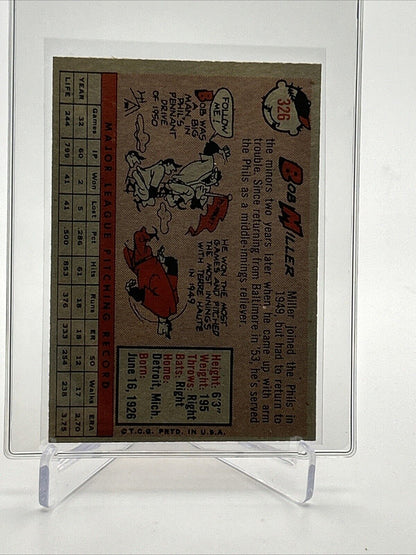 326
BOB MILLER
Miller joined the Phils in
1949, but had to return to
the minors two years later when he came up with arm
trouble. Since returning from Baltimore in '53, he's served
the Phils as a middle-innings reliever.
FOLLOW
ME!
BOB WAS
A BIG
MAN IN
PHIL'S
PENNANT
DRIVE
OF 1950
HE WON THE MOST
GAMES AND PITCHED
THE MOST INNINGS
WITH TERRE HAUTE
IN 1949
Height: 6'3"
Weight: 195
Throws: Right
Bats: Right
Home:
Detroit, Mich.
Born:
June 16, 1926
MAJOR LEAGUE PITCHING RECORD
Games IP Won Lost Pct Hits Runs ER SO Walks ERA
YEAR 32 60 2 5 .286 61 18 18 12 17 2.70
LIFE 244 799 41 41 .500 853 376 333 254 238 3.75
© T.C.G. PRTD. IN U.S.A.